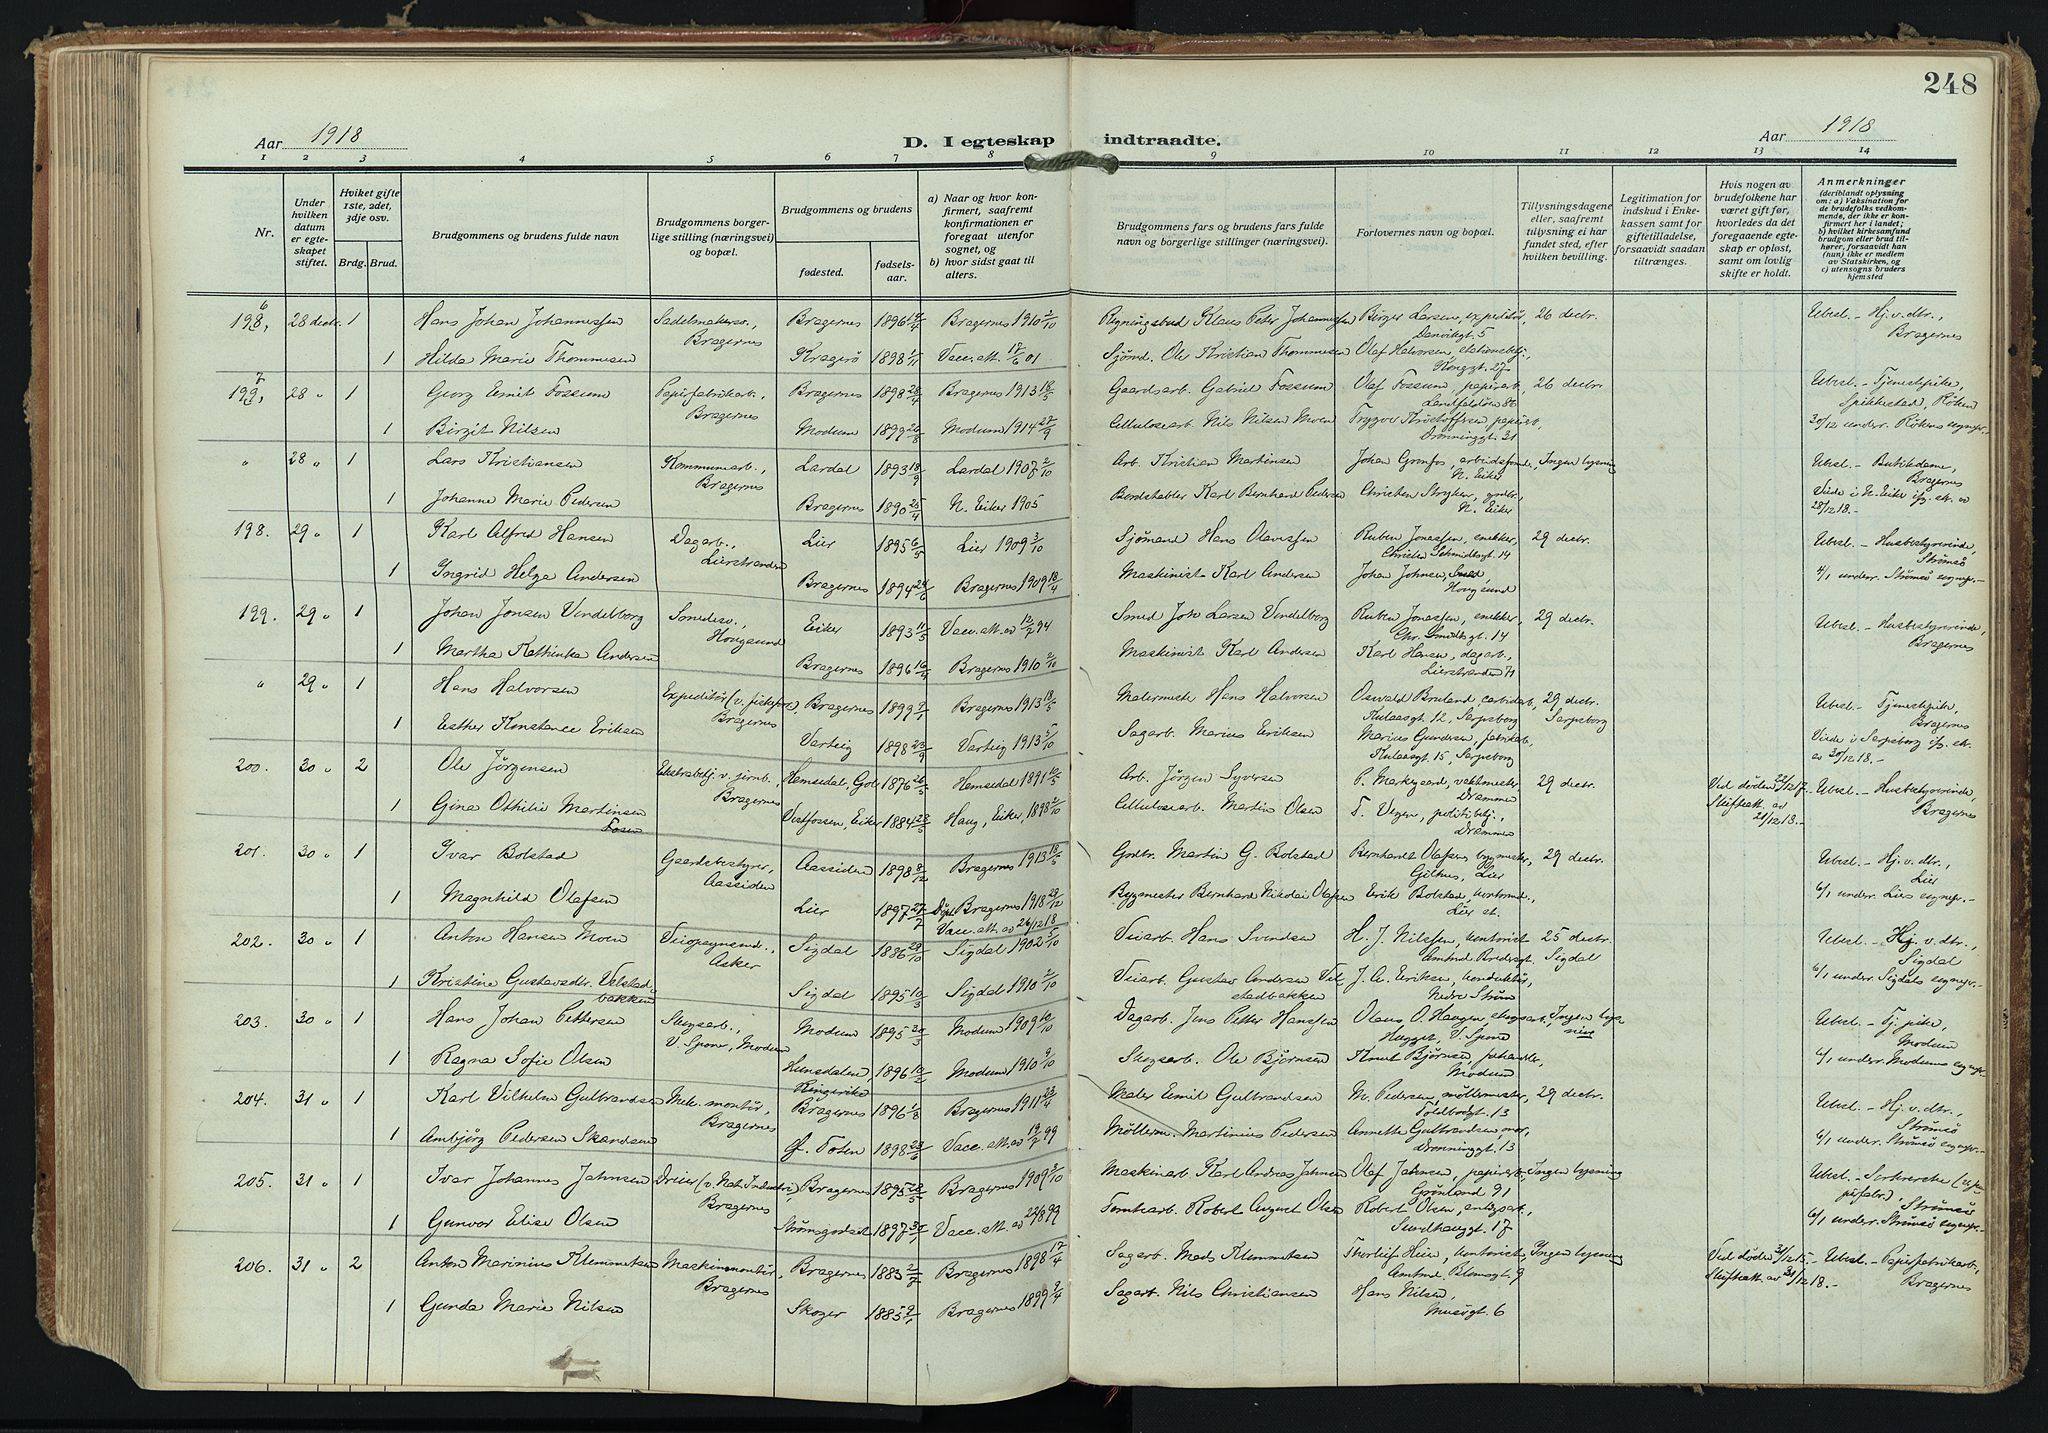 248
Aar 1918
D. I egteskap indtraadte.
Aar 1918
1 2 3 4 5 6 7 8 9 10 11 12 13 14
Nr.
Under hvilken datum er egteskapet stiftet.
Hviket gifte 1ste, 2det, 3dje osv.
Brdg. Brud.
Brudgommens og brudens fulde navn
Brudgommens borgerlige stilling (næringsvei) og bopæl.
Brudgommens og brudens
fødested.
fødselsaar.
a) Naar og hvor konfirmert, saafremt konfirmationen er foregaat utenfor sognet, og
b) hvor sidst gaat til alters.
Brudgommens fars og brudens fars fulde navn og borgerlige stillinger (næringsvei).
Forlovernes navn og bopæl.
Tillysningsdagene eller, saafremt tillysning ei har fundet sted, efter hvilken bevilling.
Legitimation for indskud i Enkekassen samt for giftetilladelse, forsaavidt saadan tiltrænges.
Hvis nogen av brudefolkene har været gift før, hvorledes da det foregaaende egteskap er opløst, samt om lovlig skifte er holdt.
Anmerkninger
(deriblandt oplysning om: a) Vaksination for de brudefolks vedkommende, der ikke er konfirmert her i landet; b) hvilket kirkesamfund brudgom eller brud tilhører, forsaavidt han (hun) ikke er medlem av Statskirken, og c) utensogns bruders hjemsted
198, 6 28 decbr. 1 Hans Johan Johannessen Sadelmakersv., Bragernes Bragernes 1896 Bragernes 1910 2/10 Klaus Peter Johannessen Birger Larsen, expeditør, Danvikgt. 5 26 decbr. Ubesl. - Hj. v. dtr., Bragernes
1 Hilda Marie Thommesen Kragerø 1898 1/11 Vacc. att. 17/6 01 Sjømd. Ole Kristian Thommesen Olaf Halvorsen, stationsbetj., Konggt. 27
199, 7 28 " 1 Georg Emil Fossum Papirfabrikarb., Bragernes Bragernes 1898 28/4 Bragernes 1913 18/5 Gaardsarb. Gabriel Fossum Olaf Fossum, papirarb., Landfaldøen 86 26 decbr. Ubesl. - Tjenestepike, Spikkestad, Røken
1 Birgit Nilsen Modum 1899 26/8 Modum 1914 27/9 Cellulosearb. Nils Nilsen Moen Trygve Kristoffersen, papirarb., Dronninggt. 31 30/12 underr. Røkens sognepr. -
" 28 " 1 Lars Kristiansen Kommunearb., Bragernes Lardal 1893 18/9 Lardal 1907 2/10 Arb. Kristian Martinsen Johan Gronfos, arbeidsformd., N. Eiker Ingen lysning Ubesl. - Butikdame, Bragernes
1 Johanne Marie Pedersen Bragernes 1890 25/4 N. Eiker 1905 Bordstabler Karl Bernhard Pedersen Christen Stryken, grdbr., N. Eiker Viede i N. Eiker 28/12 18. -
198. 29 " 1 Karl Alfred Hansen Dagarb., Lierstranden Lier 1895 6/5 Lier 1909 3/10 Sjømand Hans Olaussen Ruben Jonassen, snekker, Christen Schmidtsgt. 14 29 decbr. Ubesl. - Husbestyrerinde, Strømsø
1 Ingrid Helga Andersen Bragernes 1894 24/6 Bragernes 1909 18/4 Maskinist Karl Andersen Johan Johnsen, Smed, Hougsund 4/1 underr. Strømsø sognepr. -
199. 29 " 1 Johan Jonsen Vindelborg Smedesv., Hougsund Eiker 1893 11/5 Vacc. att. av 12/7 94 Smed Joh. Larsen Vindelborg Ruben Jonassen, snekker, Chr. Smidtsgt. 14 29 decbr. Ubesl. - Husbestyrerinde, Bragernes
1 Martha Kathinka Andersen Bragernes 1896 Bragernes 1910 2/10 Maskinist Karl Andersen Karl Hansen, dagarb., Lierstranden 71
" 29 " 1 Hans Halvorsen Expeditør (v. fiskeforr.), Bragernes Bragernes 1899 Bragernes 1913 18/5 Malermestr. Hans Halvorsen Oswald Bruland, carbidarb., Kulaasgt. 12, Sarpsborg 29 decbr. Sarpsborg Ubesl. - Tjenestepike, Bragernes
1 Esther Konstance Eriksen Varteig 1898 23/9 Varteig 1913 5/10 Sagarb. Marius Eriksen Marius Gundersen, fabrikarb., Kulaasgt. 15, Sarpsborg Viede i Sarpsborg av 30/12 18. -
200. 30 " 2 Ole Jørgensen Ekstrabetj. v. jernb., Bragernes Hemsedal, Gol 1876 26/5 Hemsedal 1891 Arb. Jørgen Syversen P. Markegaard, vaktmester, Drammen 29 decbr. Ved døden 22/12 17. Skifteatt. av 21/12 18. - Ubesl. - Husbestyrerinde, Bragernes
1 Gina Othilie Martinsen Vestfossen, Eiker 1884 23/5 Haug, Eiker, 1898 2/10 Cellulosearb. Martin Olsen T. Vegen, politibetj., Drammen
201. 30 " 1 Ivar Bolstad Gaardsbestyrer, Aassiden Aassiden 1898 8/12 Bragernes 1913 18/5 Godtr. Martin G. Bolstad Bernhardt Olafsen, bygmester, Gilhus, Lier 29 decbr. Ubesl. - Hj. v. dtr., Lier
1 Magnhild Olafsen Lier 1897 27/7 Døpt Bragernes 1918 28/12 Vacc. att. av 26/12 18 Bygmester Bernhard Nikolai Olafsen Erik Bolstad, kontormd., Lier st. 6/1 underr. Liers sognepr. -
202. 30 " 1 Anton Hansen Moen Veiopsynsmd., Asker Sigdal 1886 28/10 Sigdal 1902 5/10 Veiarb. Hans Svendsen H. J. Nilssen, kontorist Amtmd. Bredesgt. 25 decbr. Sigdal Ubesl. - Hj. v. dtr., Sigdal
1 Kristine Gustavsdtr. Velstadbakken Sigdal 1895 10/3 Sigdal 1910 2/10 Veiarb. Gustav Andersen Velstadbakken J. A. Eriksen, konduktør, Nedre Strøm 6/1 underr. Sigdals sognepr. -
203. 30 " 1 Hans Johan Pettersen Skogsarb., V. Spone, Modum Modum 1895 20/3 Modum 1909 10/10 Dagarb. Jens Petter Hanssen Olaus O. Haugen, skogsarb., Hugget, V. Spone Ingen lysning Ubesl. - Tj. pike, Modum
1 Ragna Sofie Olsen Hunsdalen, Ringerike 1896 10/2 Modum 1910 9/10 Skogsarb. Ole Bjørnsen Knut Bjørnsen, Modum 6/1 underr. Modums sognepr. -
204. 31 " 1 Karl Vilhelm Gulbrandsen Mek. montør, Bragernes Bragernes 1896 1/8 Bragernes 1911 23/4 Maler Emil Gulbrandsen M. Pedersen, møllermester, Toldbodgt. 13 29 decbr. Ubesl. - Hj. v. dtr., Strømsø
1 Ambjørg Pedersen Skandsen Ø. Toten 1898 23/6 Vacc. att. av 19/7 99 Møllerm. Martinius Pedersen Annette Gulbrandsen, mor, Dronninggt. 13 6/1 underr. Strømsø sognepr. -
205. 31 " 1 Ivar Johannes Jahnsen Dreier (v. Nat. Industri), Bragernes Bragernes 1895 28/5 Bragernes 1909 3/10 Maskinarb. Karl Andreas Jahnsen Olaf Jahnsen, papirarb., Grønland 91 Ingen lysning Ubesl. - Strømsø
1 Gunvor Elise Olsen Strømsgodset 1897 Vacc. att. av 22/8 99 Tomtearb. Robert August Olsen Robert Olsen, Sundhauggt. 17 6/1 underr. Strømsø sognepr. -
206. 31 " 2 Anton Marinius Klemmetsen Maskinmontør, Bragernes Bragernes 1883 2/7 Bragernes 1898 17/4 Sagarb. Mads Klemmetsen Thorleif Heien, kontorist, Amtmd. Blomsgt. 9 Ingen lysning Ved døden 31/12 15. - Skifteatt. av 31/12 18. - Ubesl. - Papirfabrikarb., Bragernes
1 Gunda Marie Nilsen Skoger 1885 Bragernes 1899 9/4 Sagarb. Nils Christiansen Hans Nilsen, Musøgt. 6